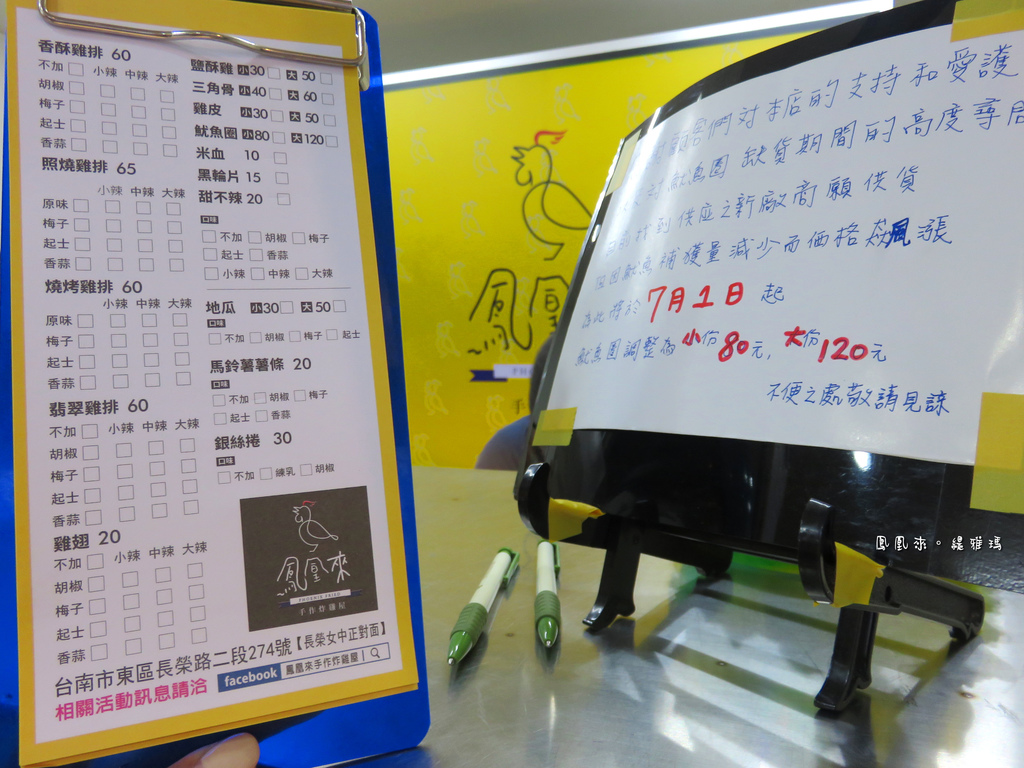 香酥雞排 60
小辣 中辣 大辣
不加
胡椒
梅子
起士
香蒜
照燒雞排 65
小辣 中辣 大辣
原味
梅子
起士
香蒜
燒烤雞排 60
小辣 中辣 大辣
原味
胡椒
梅子
起士
香蒜
翡翠雞排 60
小辣 中辣 大辣
不加
胡椒
梅子
起士
香蒜
雞翅 20
小辣 中辣 大辣
不加
胡椒
梅子
起士
香蒜
鹽酥雞 小30 大50
三角骨 小40 大60
雞皮 小30 大50
魷魚圈 小80 大120
米血 10
黑輪片 15
甜不辣 20
口味
不加 胡椒 梅子
起士 香蒜
小辣 中辣 大辣
地瓜 小30 大50
口味
不加 胡椒 梅子 起士
馬鈴薯薯條 20
口味
不加 胡椒 梅子
起士 香蒜
銀絲捲 30
口味
不加 練乳 胡椒
鳳凰來
PHOENIX FRIED
手作炸雞屋
台南市東區長榮路二段274號【長榮女中正對面】
相關活動訊息請洽 facebook 鳳凰來手作炸雞屋
鳳凰
手
顧客們對本店的支持和愛護
對魷魚圈缺貨期間的高度尋
找到供應之新廠商願供貨
因魷魚補獲量減少而價格飆漲
為此將於 7月1日 起
魷魚圈調整為 小份80元, 大份120元
不便之處敬請見諒
鳳凰來。緹雅瑪